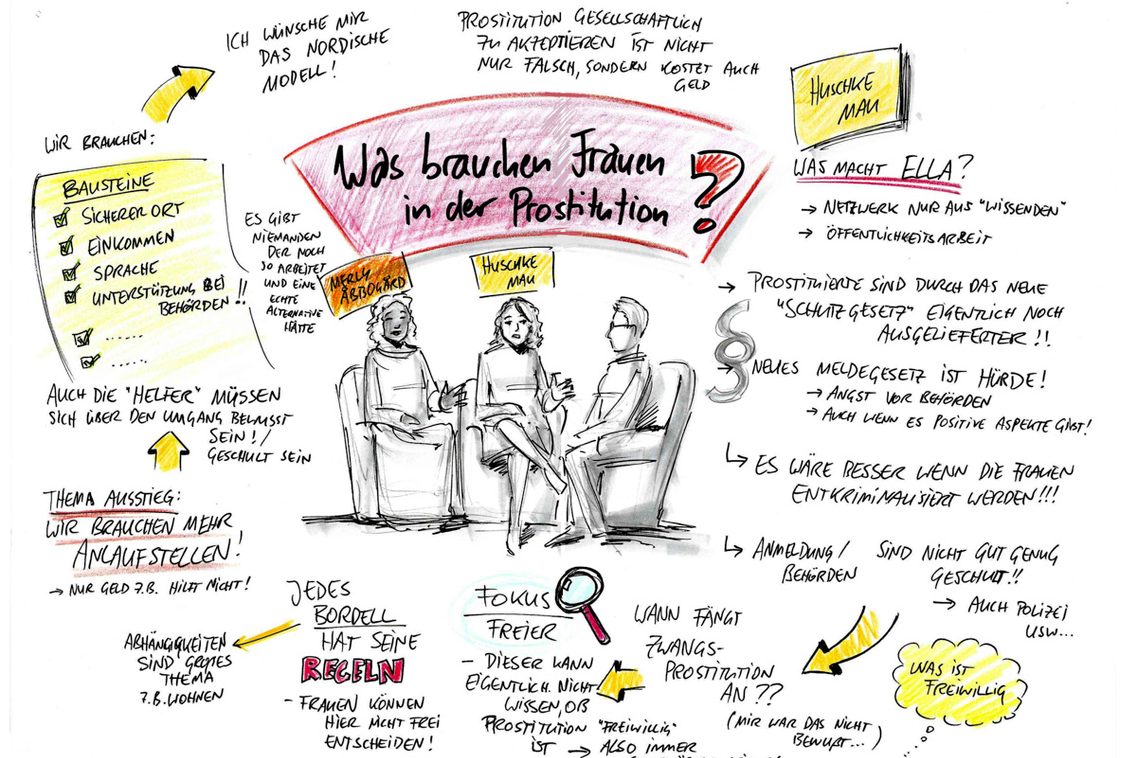 ICH WÜNSCHE MIR
DAS NORDISCHE
MODELL!
PROSTITUTION GESELLSCHAFTLICH
ZU AKZEPTIEREN IST NICHT
NUR FALSCH, SONDERN KOSTET AUCH
GELD
HUSCHKE
MAU
Was brauchen Frauen
in der Prostitution ?
WIR BRAUCHEN:
BAUSTEINE
SICHERER ORT
EINKOMMEN
SPRACHE
UNTERSTÜTZUNG BEI
BEHÖRDEN!!
......
......
ES GIBT
NIEMANDEN
DER NOCH
SO ARBEITET
UND EINE
ECHTE
ALTERNATIVE
HÄTTE
MERLY
ÅBBOGÅRD
HUSCHKE
MAU
WAS MACHT ELLA?
→ NETZWERK NUR AUS "WISSENDEN"
→ ÖFFENTLICHKEITSARBEIT
→ PROSTITUIERTE SIND DURCH DAS NEUE
"SCHUTZGESETZ" EIGENTLICH NOCH
AUSGELIEFERTER!!
§
→ NEUES MELDEGESETZ IST HÜRDE!
→ ANGST VOR BEHÖRDEN
→ AUCH WENN ES POSITIVE ASPEKTE GIBT!
↳ ES WÄRE BESSER WENN DIE FRAUEN
ENTKRIMINALISIERT WERDEN!!!
↳ ANMELDUNG/ SIND NICHT GUT GENUG
BEHÖRDEN GESCHULT!!
→ AUCH POLIZEI
USW...
AUCH DIE "HELFER" MÜSSEN
SICH ÜBER DEN UMGANG BEWUSST
SEIN!/
GESCHULT SEIN
THEMA AUSSTIEG:
WIR BRAUCHEN MEHR
ANLAUFSTELLEN!
→ NUR GELD Z.B. HILFT NICHT!
JEDES
BORDELL
HAT SEINE
REGELN
- FRAUEN KÖNNEN
HIER NICHT FREI
ENTSCHEIDEN!
ABHÄNGIGKEITEN
SIND GROßES
THEMA
Z.B. WOHNEN
FOKUS
FREIER
- DIESER KANN
EIGENTLICH NICHT
WISSEN, OB
PROSTITUTION "FREIWILLIG"
IST → ALSO IMMER
WANN FÄNGT
ZWANGS-
PROSTITUTION
AN??
(MIR WAR DAS NICHT
BEWUßT...)
WAS IST
FREIWILLIG